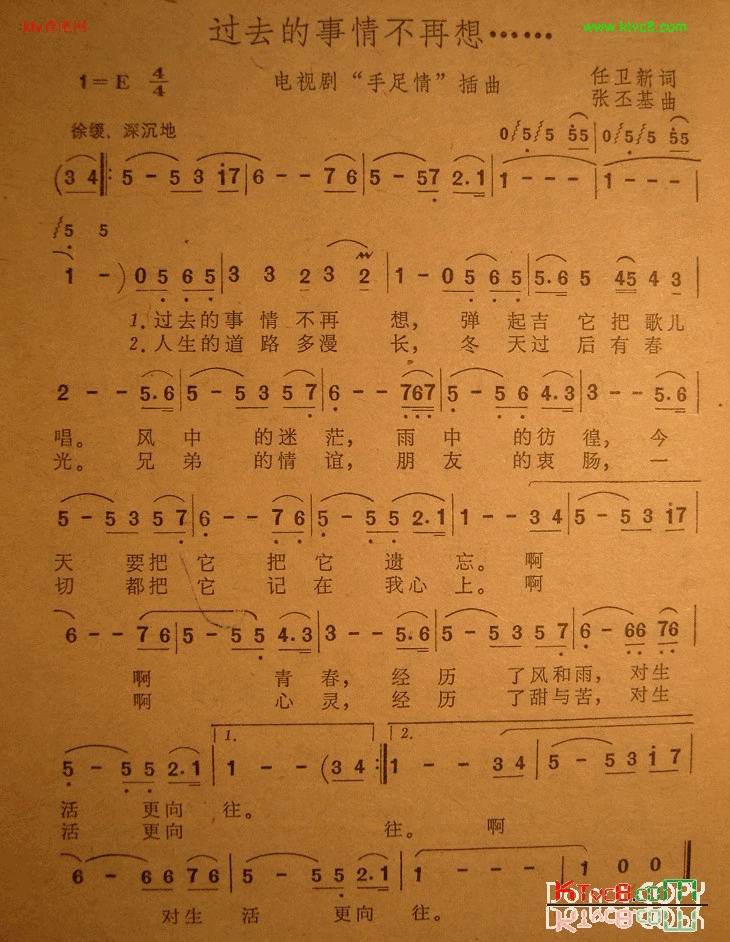 过去的事情不再想……
1=E 4/4
电视剧“手足情”插曲
任卫新词
张丕基曲
徐缓、深沉地
0 5 5 55 | 0 5 5 55
(3 4 ‖: 5 - 5 3 i7 | 6 - - 7 6 | 5 - 57 2.1 | 1 - - - | 1 - - - |
5 5
1 - ) 0 5 6 5 | 3 3 2 3 2 | 1 - 0 5 6 5 | 5.6 5 45 4 3 |
1.过去的事情不再想，弹起吉它把歌儿
2.人生的道路多漫长，冬天过后有春
2 - - 5.6 | 5 - 5 3 5 7 | 6 - - 767 | 5 - 5 6 4.3 | 3 - - 5.6 |
唱。风中的迷茫，雨中的彷徨，今
光。兄弟的情谊，朋友的衷肠，一
5 - 5 3 5 7 | 6 - - 7 6 | 5 - 5 5 2.1 | 1 - - 3 4 | 5 - 5 3 i7
天要把它把它遗忘。啊
切都把它记在我心上。啊
6 - - 7 6 | 5 - 5 5 4.3 | 3 - - 5.6 | 5 - 5 3 5 7 | 6 - 66 76 |
啊青春，经历了风和雨，对生
啊心灵，经历了甜与苦，对生
1. 2.
5 - 5 5 2.1 | 1 - - (3 4 :‖ 1 - - 3 4 | 5 - 5 3 i 7 |
活更向往。
活更向往。啊
6 - 6 6 7 6 | 5 - 5 5 2.1 | 1 - - - | 1 0 0 ‖
对生活更向往。
www.ktvc8.com